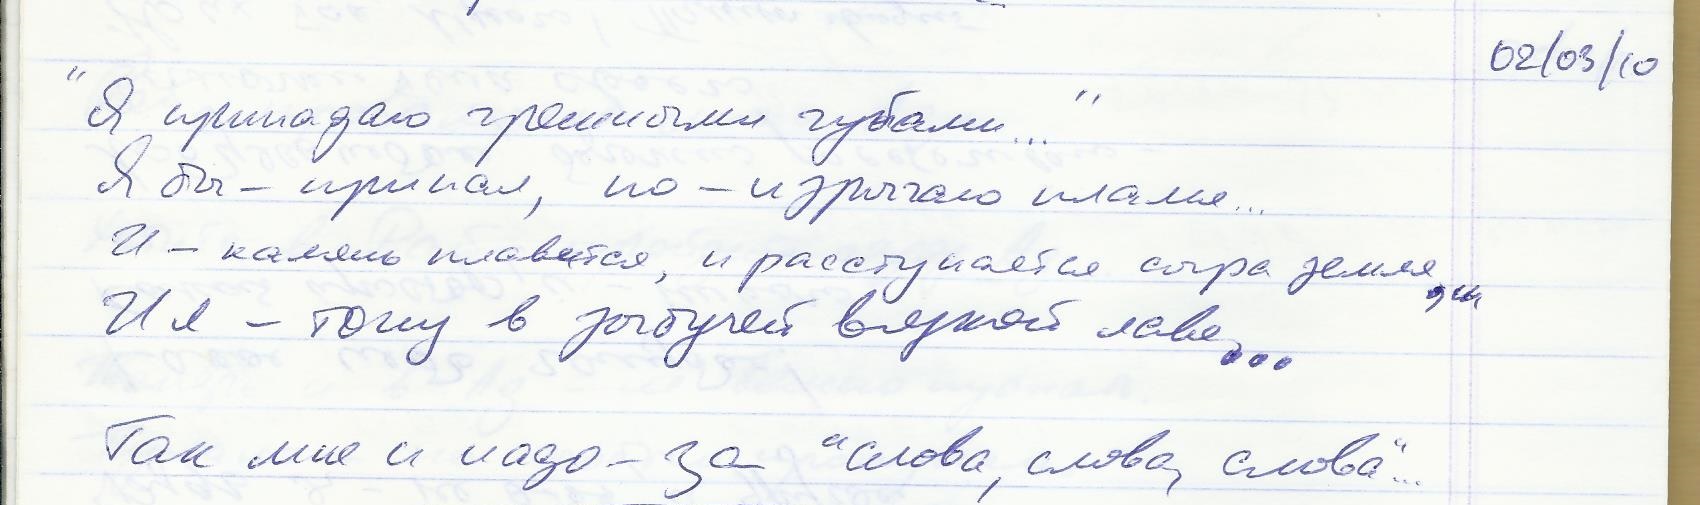 02/03/10
"Я припадаю грешными губами..."
Я бы – припал, но – изрыгаю пламя...
И – камень плавится, и расступается сыра земля,...
И я – тону в зыбучей вязкой лаве...
Так мне и надо – за "слова, слова, слова"...